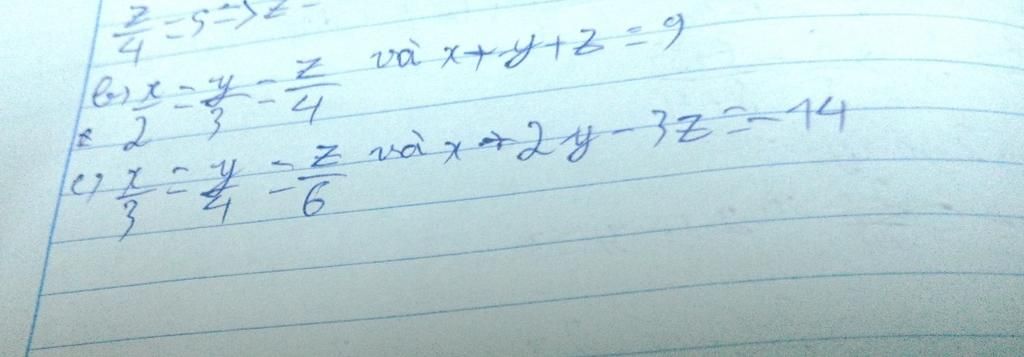 z/4 = 5 => z =
b) x/2 = y/3 = z/4 và x + y + z = 9
c) x/3 = y/4 = z/6 và x + 2y - 3z = -14